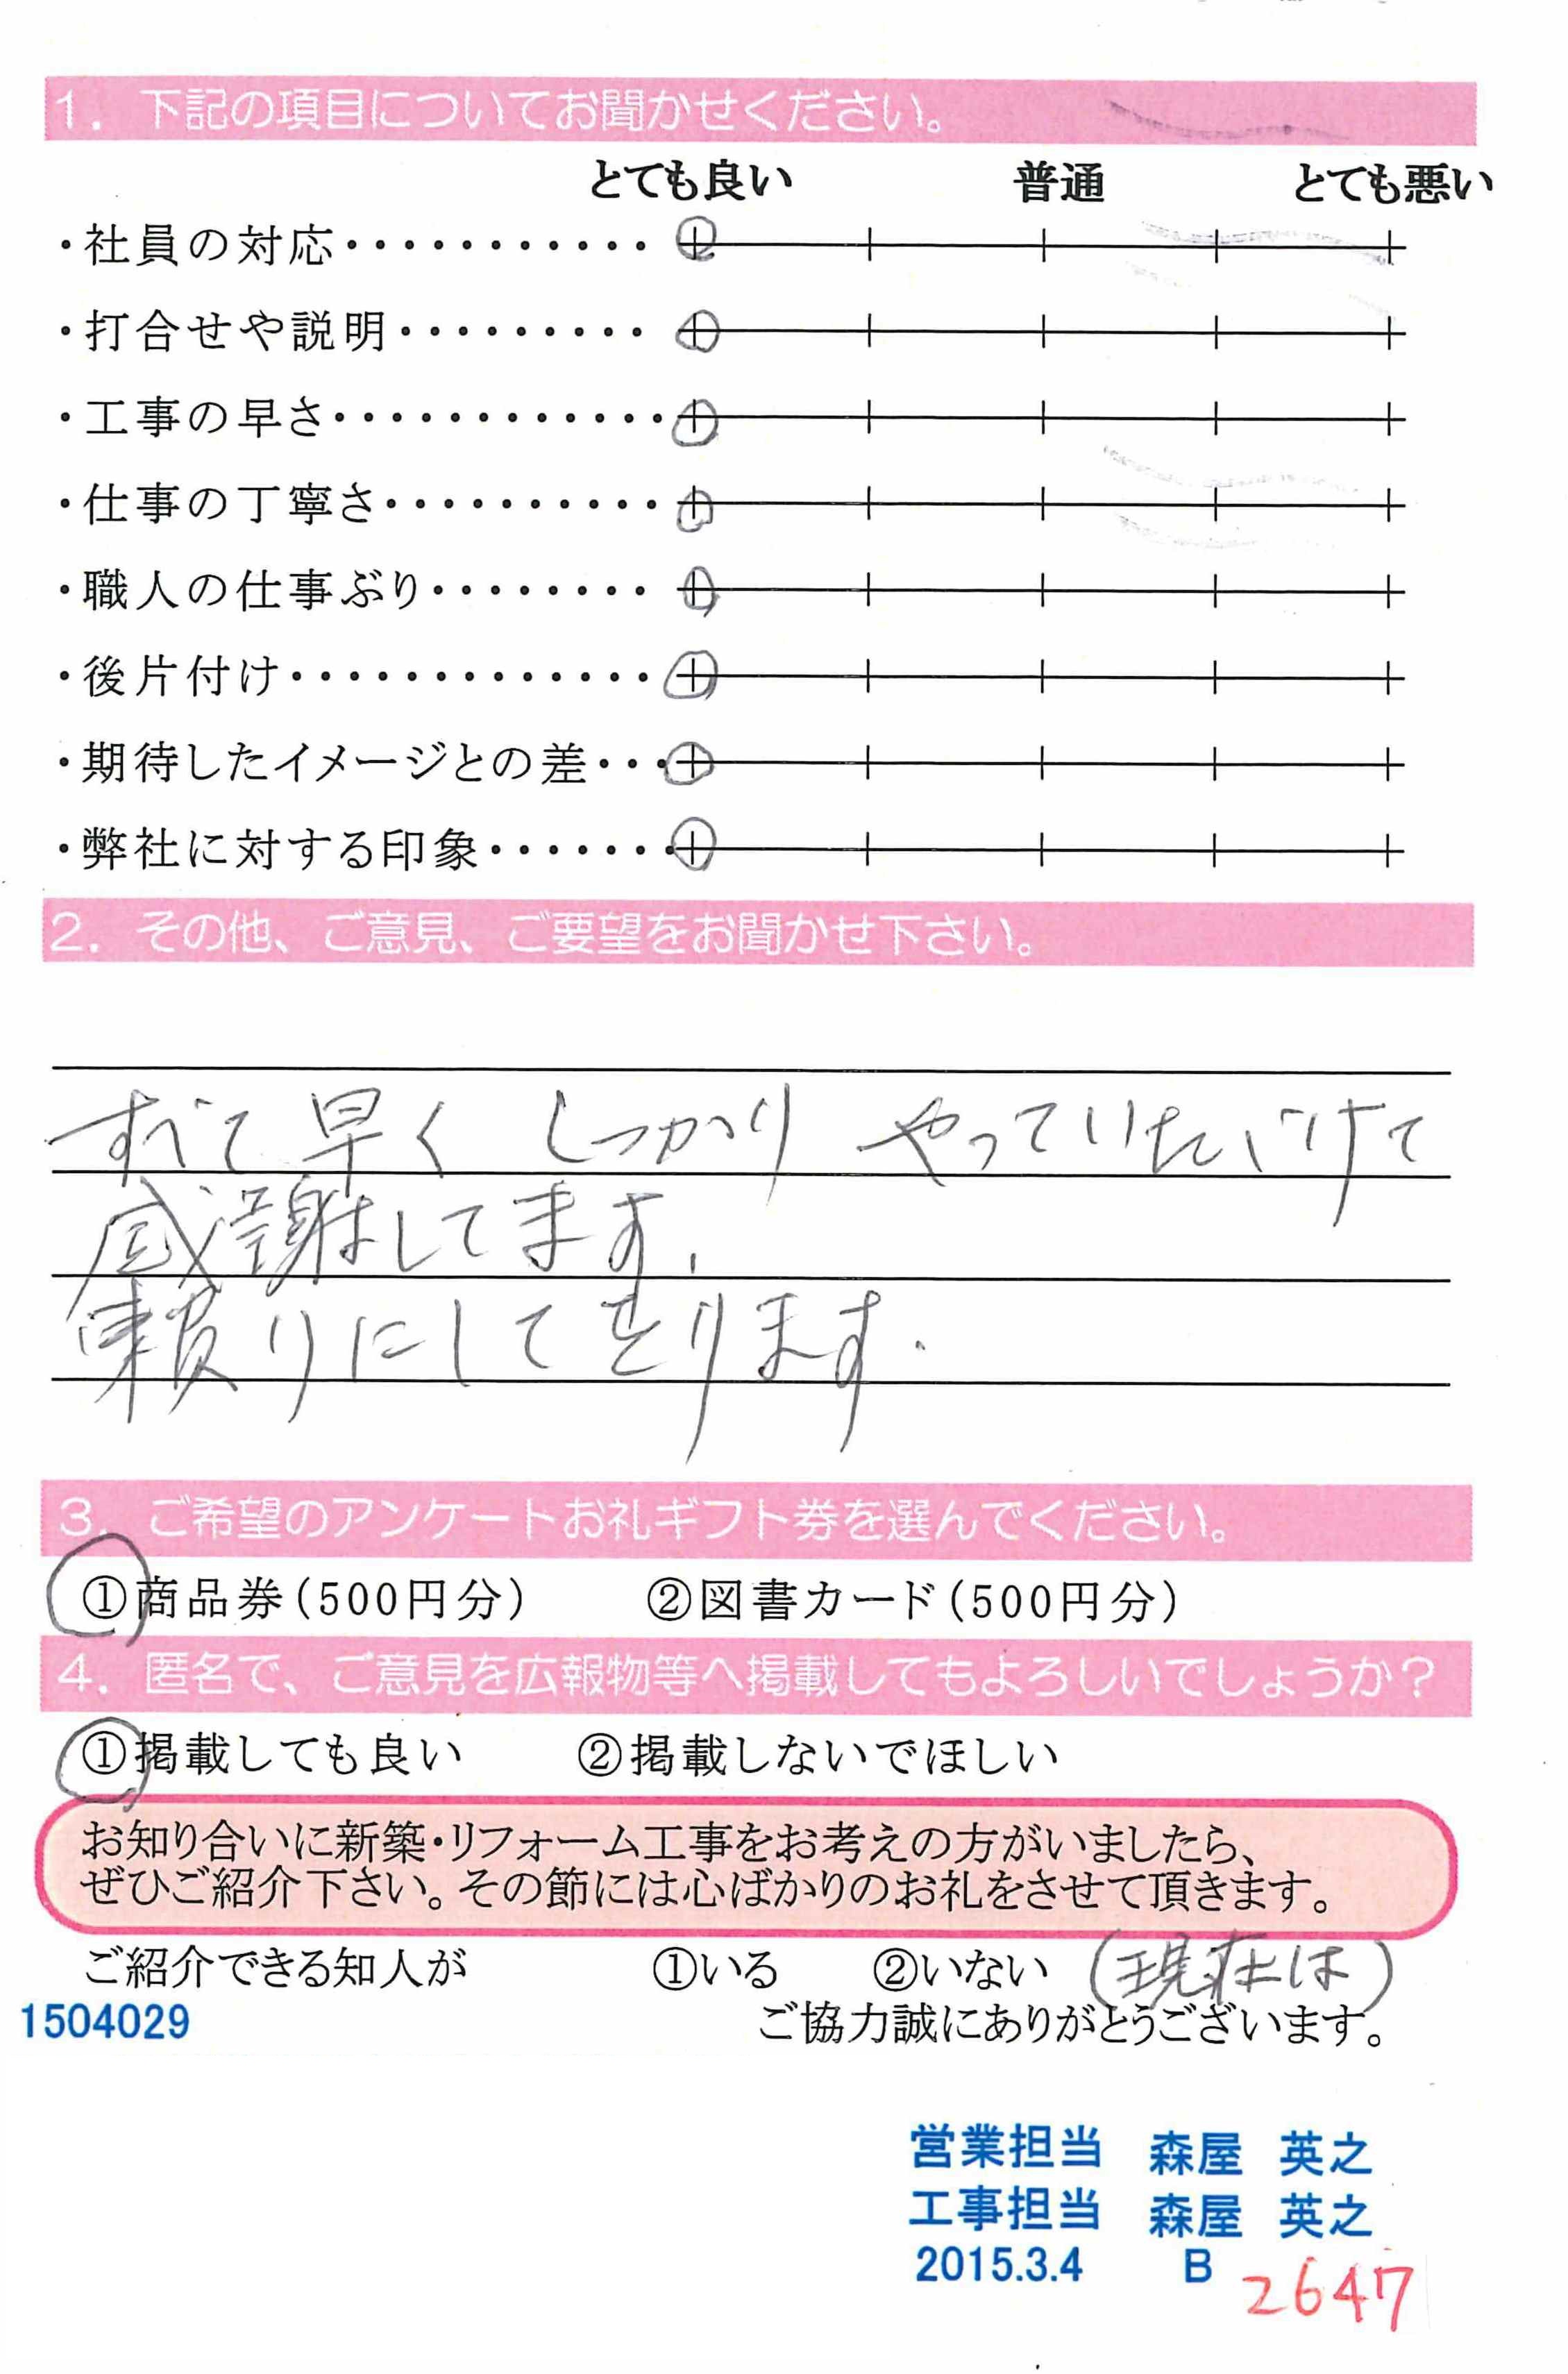 1. 下記の項目についてお聞かせください。
とても良い 普通 とても悪い
・社員の対応・・・・・・・・・・・
・打合せや説明・・・・・・・・・
・工事の早さ・・・・・・・・・・・・
・仕事の丁寧さ・・・・・・・・・・
・職人の仕事ぶり・・・・・・・・
・後片付け・・・・・・・・・・・・・
・期待したイメージとの差・・・
・弊社に対する印象・・・・・・・
2. その他、ご意見、ご要望をお聞かせ下さい。
すべて早く しっかり やっていただけて
感謝してます.
頼りにしてをります.
3. ご希望のアンケートお礼ギフト券を選んでください。
①商品券(500円分) ②図書カード(500円分)
4. 匿名で、ご意見を広報物等へ掲載してもよろしいでしょうか?
①掲載しても良い ②掲載しないでほしい
お知り合いに新築・リフォーム工事をお考えの方がいましたら、
ぜひご紹介下さい。その節には心ばかりのお礼をさせて頂きます。
ご紹介できる知人が ①いる ②いない (現在は)
1504029 ご協力誠にありがとうございます。
営業担当 森屋 英之
工事担当 森屋 英之
2015.3.4 B 2647